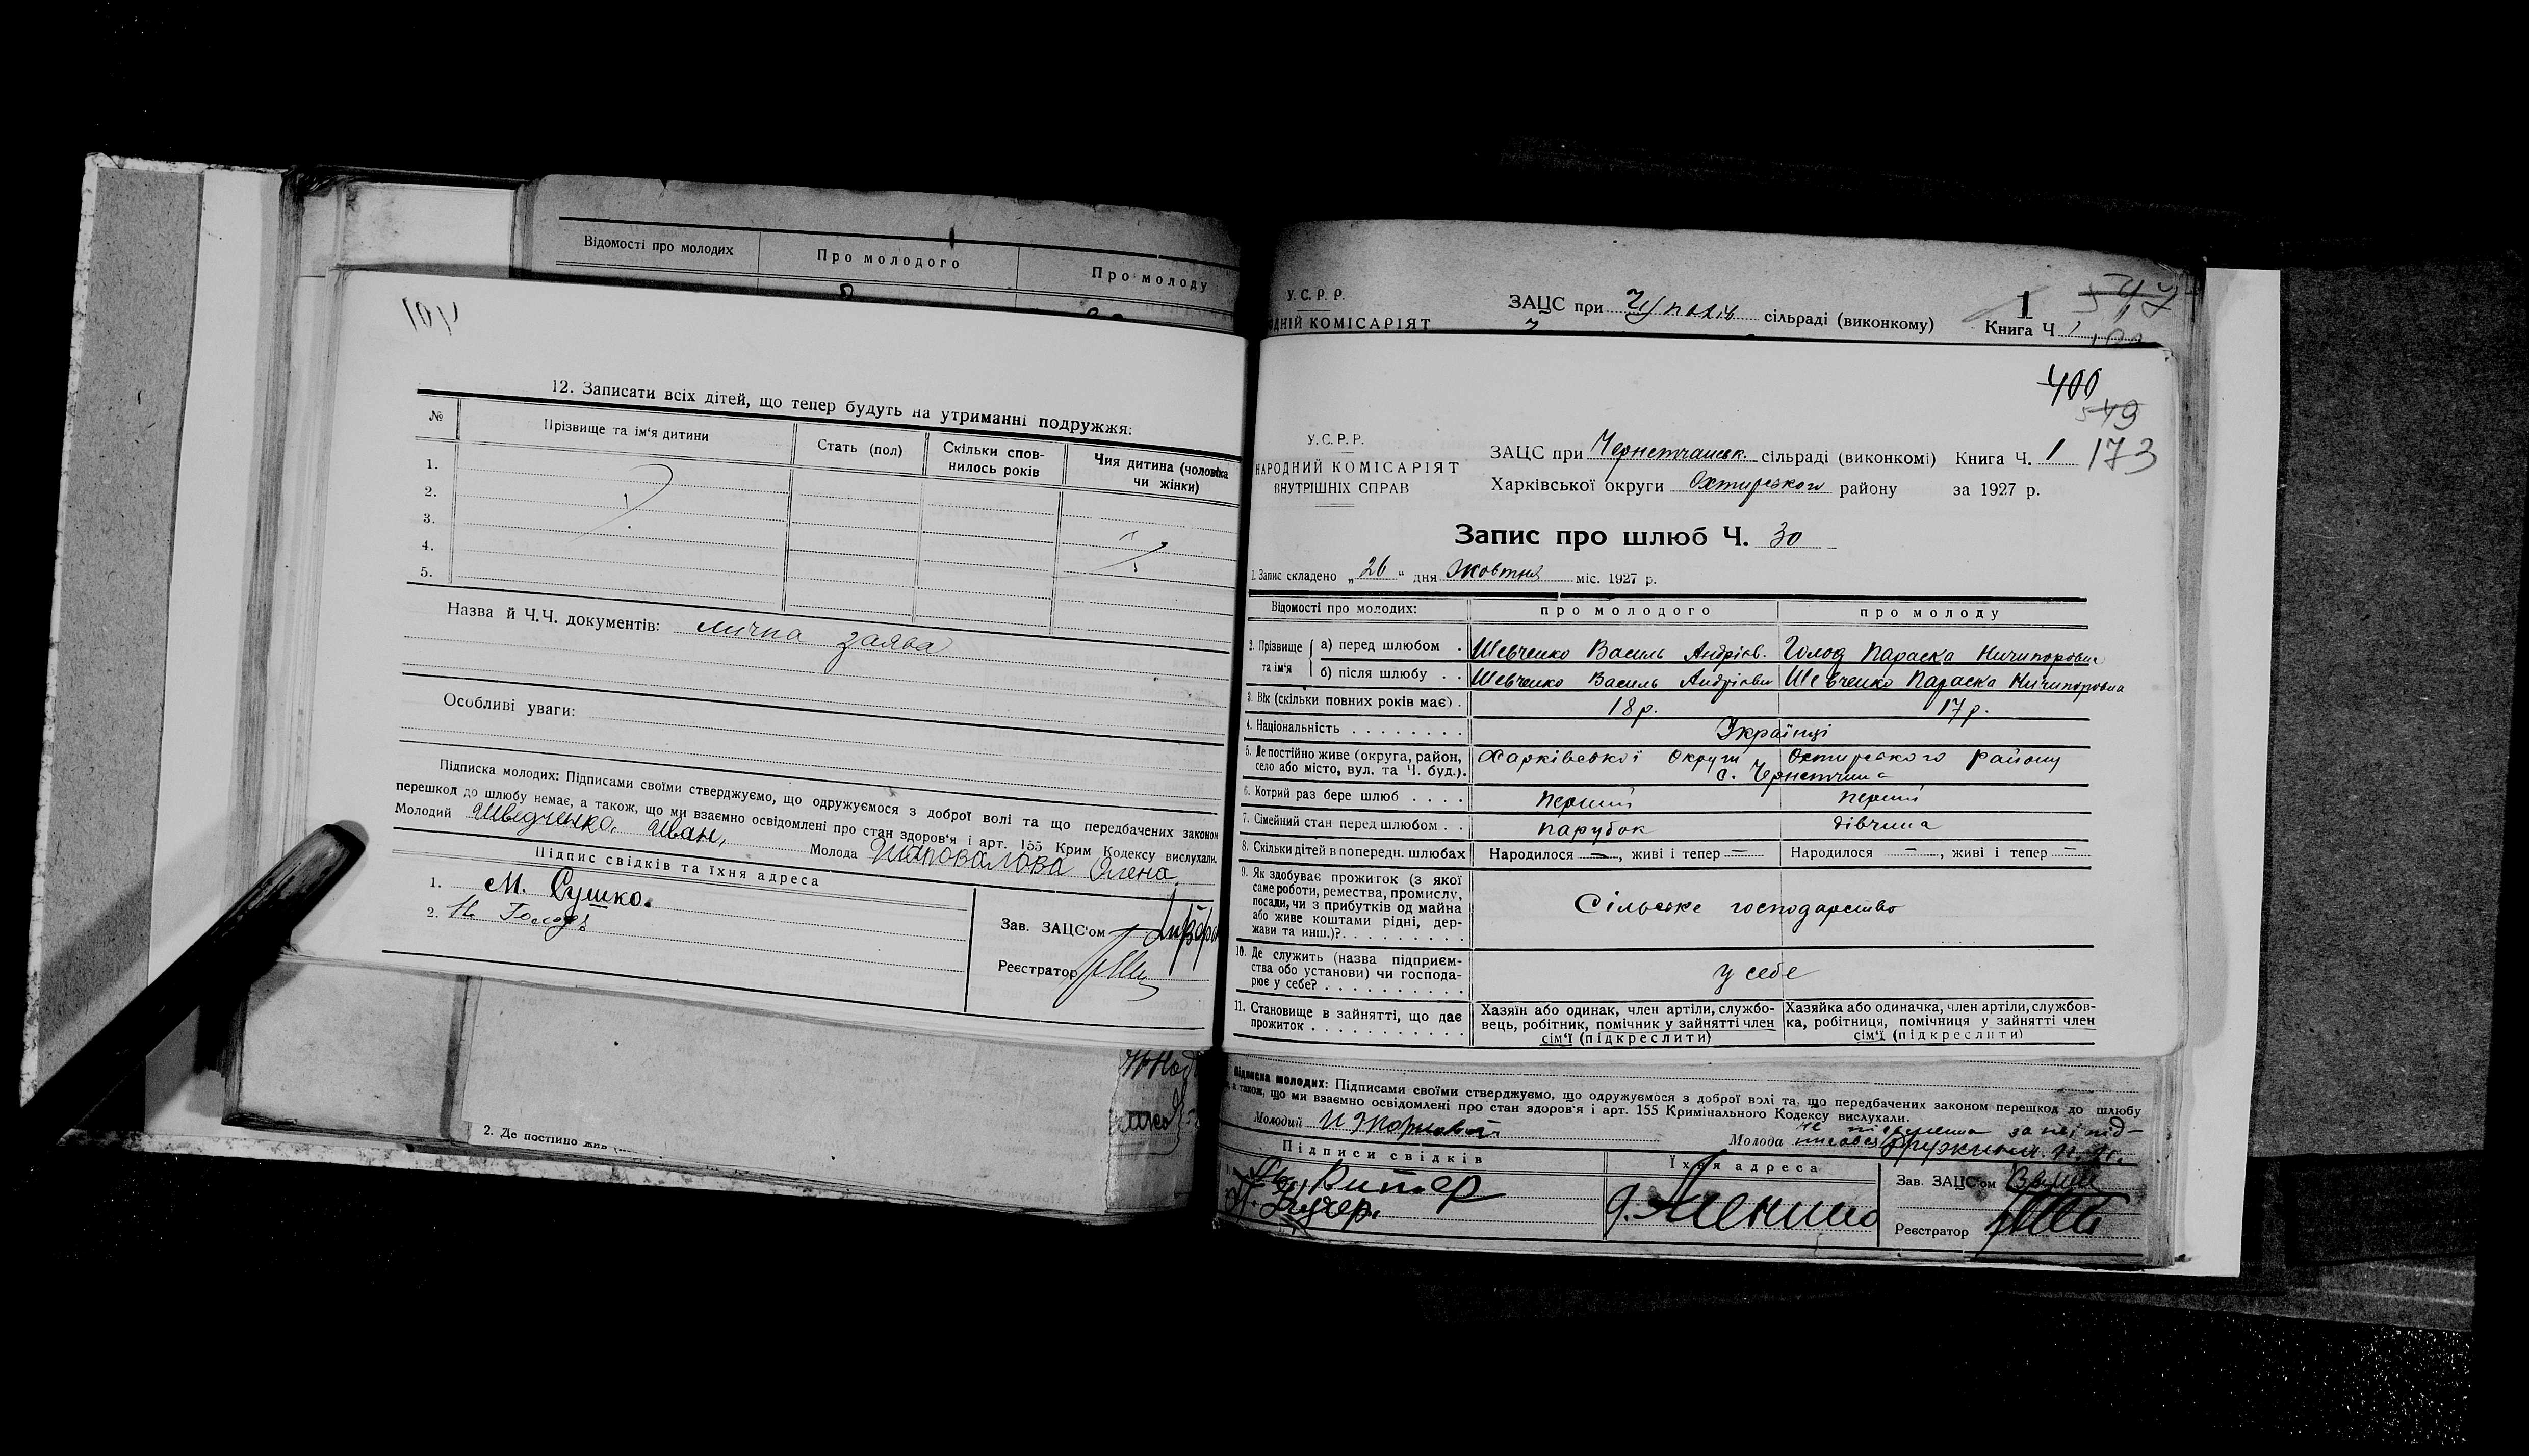 Відомості про молодих
Про молодого
Про молоду
12. Записати всіх дітей, що тепер будуть на утриманні подружжя:
№ Прізвище та ім'я дитини Стать (пол) Скільки спов- Чия дитина (чоловіка
нилось років чи жінки)
1.
2.
3.
4.
5.
Назва й Ч.Ч. документів: лична заява
Особливі уваги:
Підписка молодих: Підписами своїми стверджуємо, що одружуємося з доброї волі та що передбачених законом
перешкод до шлюбу немає, а також, що ми взаємно освідомлені про стан здоров'я і арт. 155 Крим Кодексу вислухали.
Молодий Шведченко, Иван, Молода Шаповалова Олена
Підпис свідків та їхня адреса
1. М. Сушко.
2. Голод
Зав. ЗАЦС'ом
Реєстратор
2. Де постійно жив
У.С.Р.Р.
КОМІСАРІЯТ
ЗАЦС при Чупахів сільраді (виконкому)
1
547
Книга Ч 1
400
549
173
У.С.Р.Р.
НАРОДНИЙ КОМІСАРІЯТ
ВНУТРІШНІХ СПРАВ
ЗАЦС при Чернетчанськ. сільраді (виконкомі) Книга Ч. 1
Харківської округи Охтирського району за 1927 р.
Запис про шлюб Ч. 30
1. Запис складено „26" дня Жовтня міс. 1927 р.
Відомості про молодих: про молодого про молоду
2. Прізвище та ім'я а) перед шлюбом . Шевченко Василь Андріїв. Голод Параска Ничипоровна
б) після шлюбу . . Шевченко Василь Андрієви Шевченко Параска Ничипоровна
3. Вік (скільки повних років має) . 18 р. 17 р.
4. Національність . . . . . . . . Українці
5. Де постійно живе (округа, район, село або місто, вул. та Ч. буд.). Харківської Округи Охтирського району
с. Чернетчина
6. Котрий раз бере шлюб . . . . перший перший
7. Сімейний стан перед шлюбом . . парубок дівчина
8. Скільки дітей в попередн. шлюбах Народилося —, живі і тепер — Народилося —, живі і тепер —
9. Як здобуває прожиток (з якої
саме роботи, ремества, промислу,
посади, чи з прибутків од майна
або живе коштами рідні, дер-
жави та инш.)?. . . . . . . . .
Сільське господарство
10. Де служить (назва підприєм-
ства або установи) чи господа-
рює у себе? . . . . . . . . . .
у себе
11. Становище в зайнятті, що дає
прожиток . . . . . . . . . . .
Хазяїн або одинак, член артіли, службо-
вець, робітник, помічник у зайнятті член
сім'ї (підкреслити)
Хазяйка або одиначка, член артіли, службов-
ка, робітниця, помічниця у зайнятті член
сім'ї (підкреслити)
Підписка молодих: Підписами своїми стверджуємо, що одружуємося з доброї волі та, що передбачених законом перешкод до шлюбу
а також, що ми взаємно освідомлені про стан здоров'я і арт. 155 Кримінального Кодексу вислухали.
Молодий
Молода
Підписи свідків
Їхня адреса
Зав. ЗАЦС'ом
Реєстратор